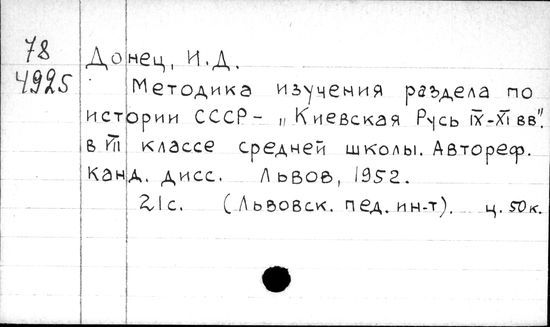 78 Донец, И.Д.
4925 Методика изучения раздела по
истории СССР - „Киевская Русь IX-XI вв".
в VII классе средней школы. Автореф.
канд. дисс. Львов, 1952.
21с. (Львовск. пед. ин-т). ц. 50к.